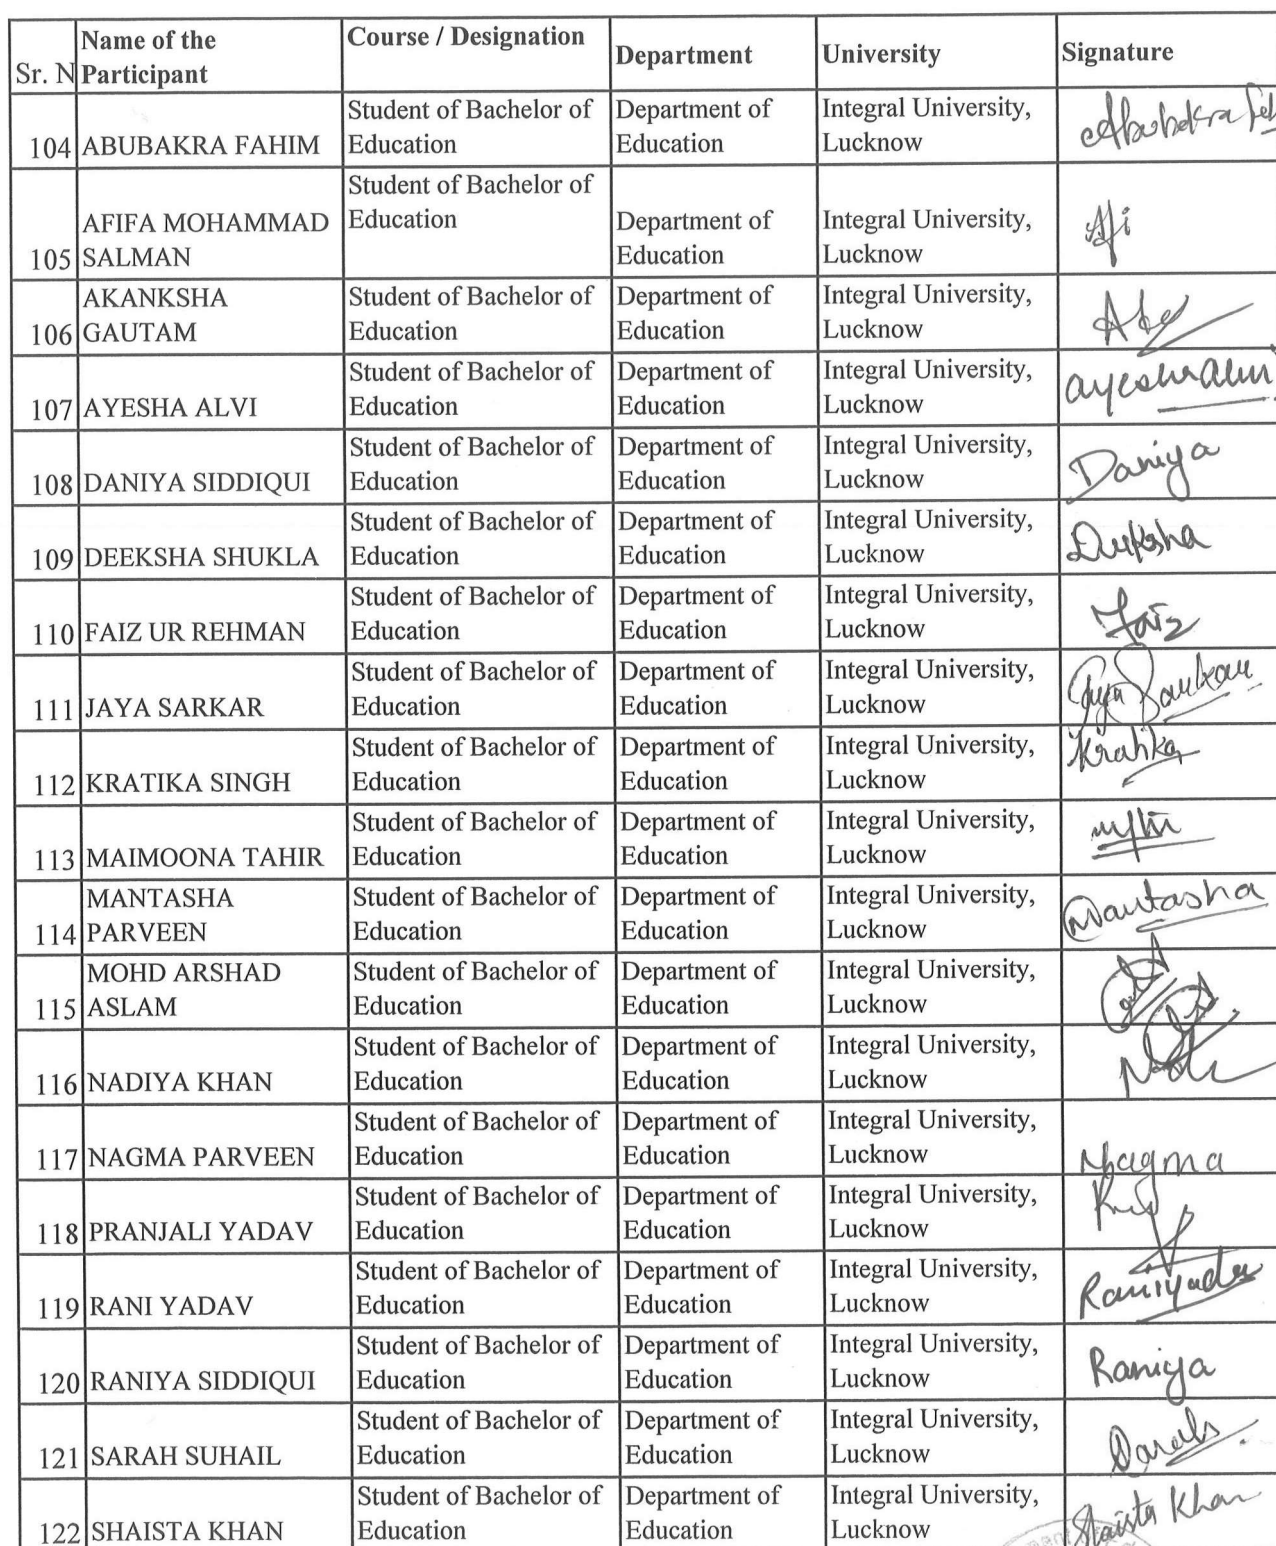 Sr. N Name of the Participant Course / Designation Department University Signature
104 ABUBAKRA FAHIM Student of Bachelor of Education Department of Education Integral University, Lucknow Abubakra
105 AFIFA MOHAMMAD SALMAN Student of Bachelor of Education Department of Education Integral University, Lucknow Afi
106 AKANKSHA GAUTAM Student of Bachelor of Education Department of Education Integral University, Lucknow
107 AYESHA ALVI Student of Bachelor of Education Department of Education Integral University, Lucknow ayesha alvi
108 DANIYA SIDDIQUI Student of Bachelor of Education Department of Education Integral University, Lucknow Daniya
109 DEEKSHA SHUKLA Student of Bachelor of Education Department of Education Integral University, Lucknow Deeksha
110 FAIZ UR REHMAN Student of Bachelor of Education Department of Education Integral University, Lucknow Faiz
111 JAYA SARKAR Student of Bachelor of Education Department of Education Integral University, Lucknow Jaya Sarkar
112 KRATIKA SINGH Student of Bachelor of Education Department of Education Integral University, Lucknow Kratika
113 MAIMOONA TAHIR Student of Bachelor of Education Department of Education Integral University, Lucknow
114 MANTASHA PARVEEN Student of Bachelor of Education Department of Education Integral University, Lucknow Mantasha
115 MOHD ARSHAD ASLAM Student of Bachelor of Education Department of Education Integral University, Lucknow
116 NADIYA KHAN Student of Bachelor of Education Department of Education Integral University, Lucknow
117 NAGMA PARVEEN Student of Bachelor of Education Department of Education Integral University, Lucknow Nagma
118 PRANJALI YADAV Student of Bachelor of Education Department of Education Integral University, Lucknow
119 RANI YADAV Student of Bachelor of Education Department of Education Integral University, Lucknow Rani yadav
120 RANIYA SIDDIQUI Student of Bachelor of Education Department of Education Integral University, Lucknow Raniya
121 SARAH SUHAIL Student of Bachelor of Education Department of Education Integral University, Lucknow Sarah
122 SHAISTA KHAN Student of Bachelor of Education Department of Education Integral University, Lucknow Shaista Khan